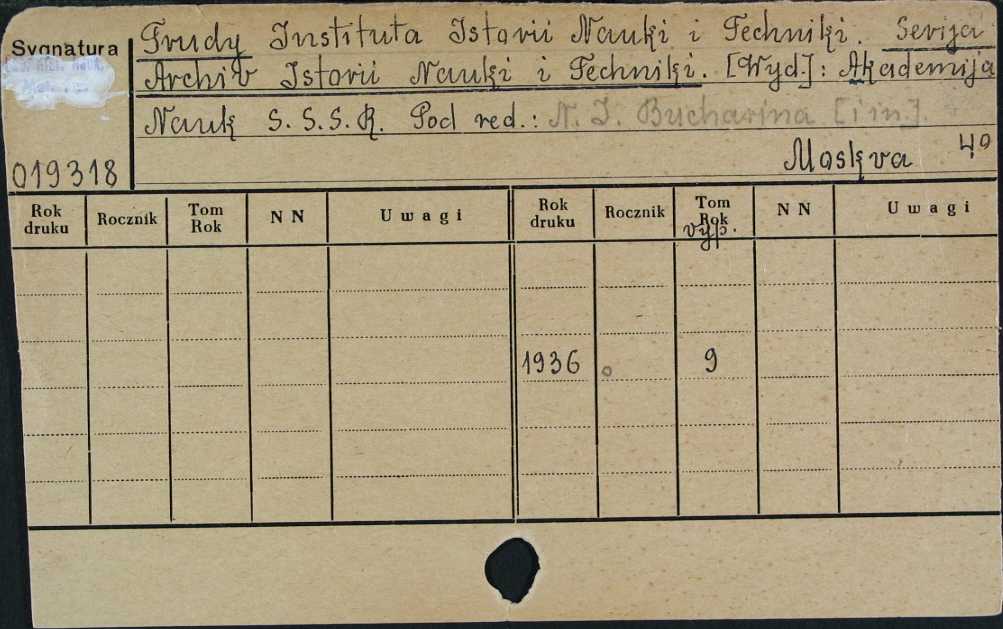 Sygnatura
Trudy Instituta Istorii Nauki i Techniki. Serija
Archiv Istorii Nauki i Techniki. [Wyd.]: Akademija
Nauk S.S.S.R. Pod red.: N. I. Bucharina [i in.].
Moskva 4°
019318
Rok druku Rocznik Tom Rok N N Uwagi Rok druku Rocznik Tom Rok vyp. N N Uwagi
1936 9